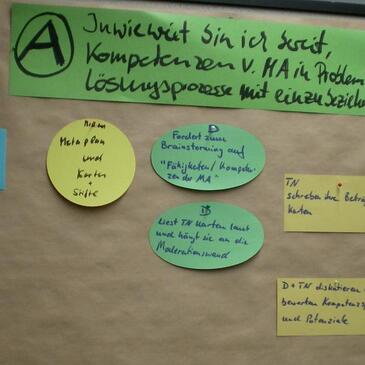 A
Inwieweit bin ich bereit,
Kompetenzen v. MA in Problem
Lösungsprozesse mit einzubeziehen
Metaplan
und
Karten
+
Stifte
D
Fordert zum
Brainstorming auf
"Fähigkeiten/Kompeten-
zen der MA"
D
Liest TN Karten laut
und hängt sie an die
Moderationswand
TN
schreiben ihre Beträ
Karten
D + TN diskutieren
bewerten Kompetenz
und Potenziale